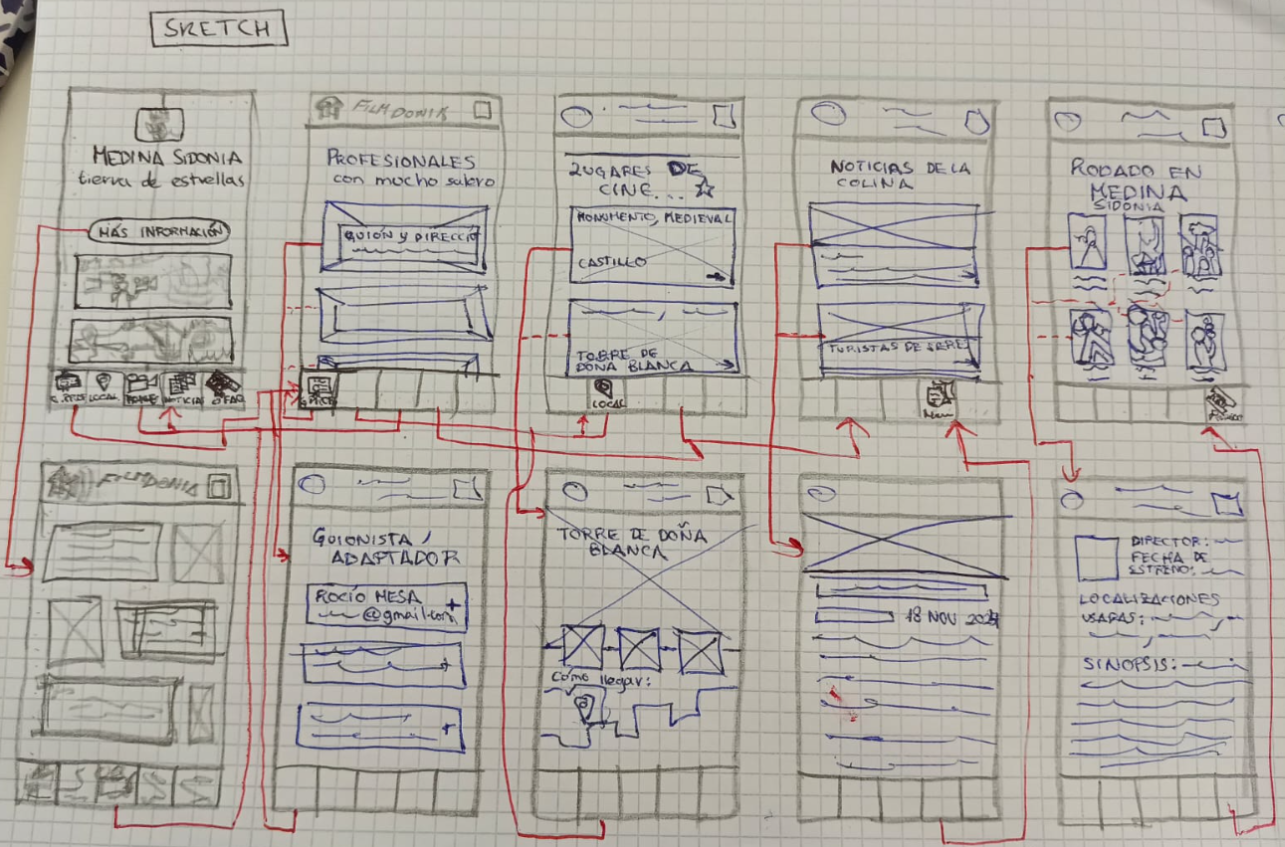 SKETCH
MEDINA SIDONIA
tierra de estrellas
MÁS INFORMACIÓN
LOCAL
NOTICIAS
FILMDONIA
PROFESIONALES
con mucho salero
GUIÓN Y DIRECCIÓ
LUGARES DE
CINE...
MONUMENTO, MEDIEVAL
CASTILLO
TORRE DE
DOÑA BLANCA
LOCAL
NOTICIAS DE LA
COLINA
TURISTAS DE SERIE
New
RODADO EN
MEDINA
SIDONIA
FILMDONIA
GUIONISTA /
ADAPTADOR
ROCÍO MESA +
@gmail.com
+
+
TORRE DE DOÑA
BLANCA
Cómo llegar:
18 NOV 2024
DIRECTOR:
FECHA DE
ESTRENO:
LOCALIZACIONES
USADAS:
SINOPSIS: